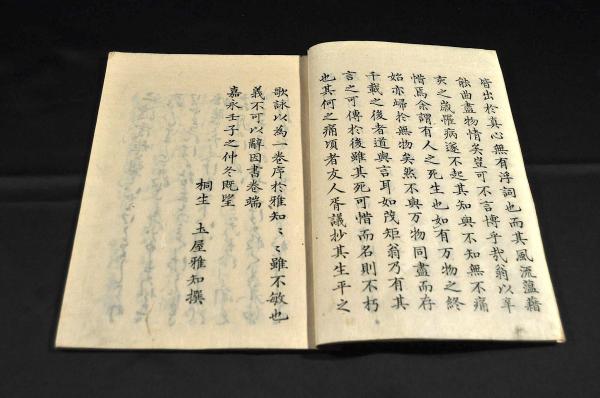 皆出於真心無有浮詞也而其風流薀藉
能曲盡物情矣豈可不言博乎哉翁以辛
亥之歳罹病遂不起其知與不知無不痛
惜焉余謂有人之死生也如有万物之終
始亦歸於無物矣然不與万物同盡而存
千載之後者道與言耳如茂矩翁乃有其
言之可傳於後雖其死可惜而名則不朽
也其何之痛頃者友人胥議抄其生平之
歌詠以為一巻序於雅知〻〻雖不敏也
義不可以辭因書巻端
嘉永壬子之仲冬既望
桐生 玉屋雅知撰